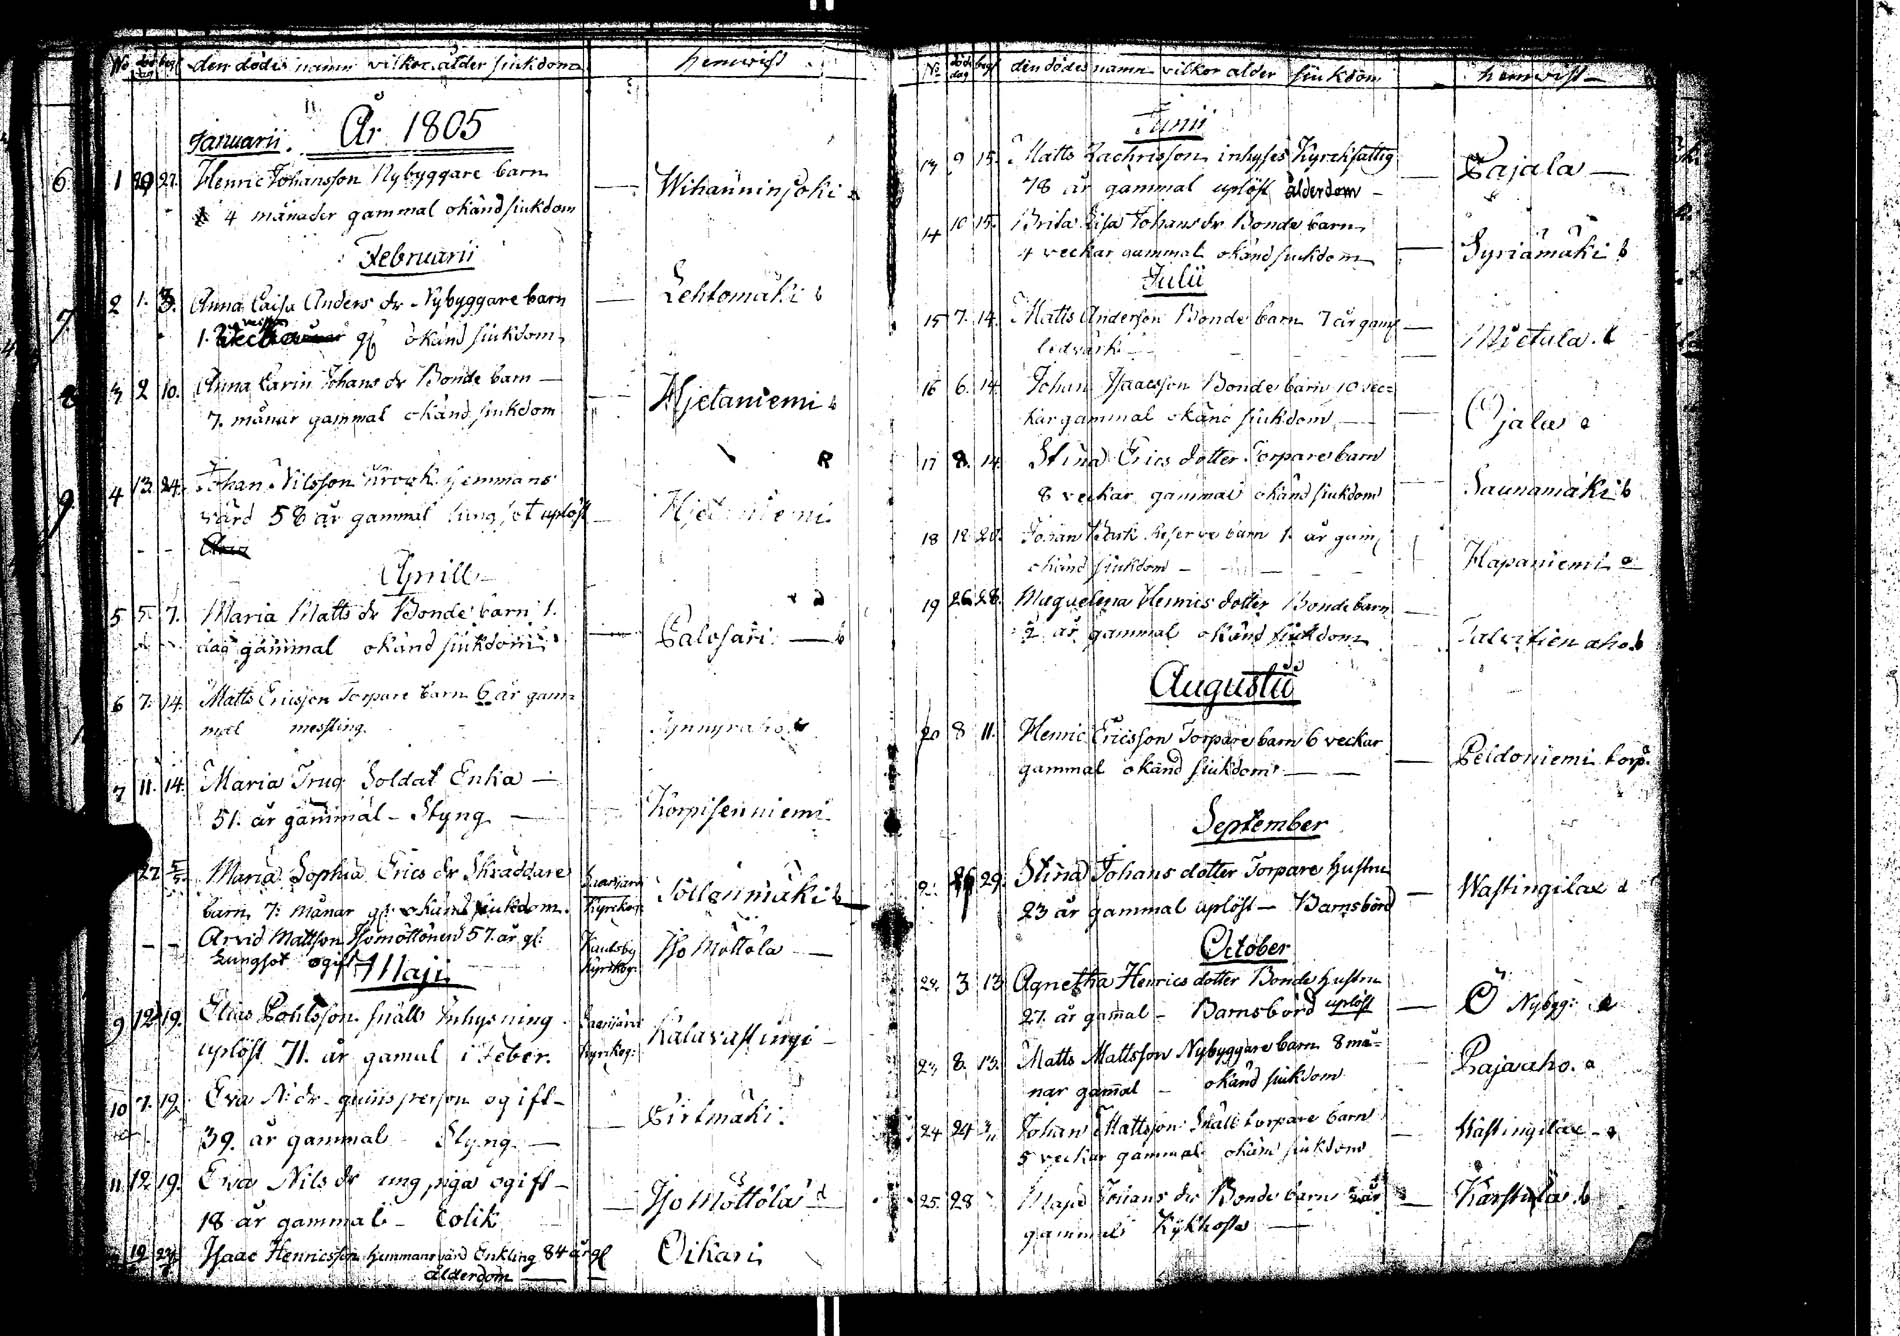 No död dag begr den dödes namn vilkor ålder siukdom hemvist
År 1805
Januarii.
6 1 29 27. Henric Johansson Nybyggare barn Wihanninjoki a
4 månader gammal okänd siukdom
Februarii
7 2 1. 3. Anna Caisa Anders dr Nybyggare barn Lehtomäki b
1. gl okänd siukdom
3 2 10. Anna Carin Johans dr Bonde barn Hjetaniemi b
7. månar gammal okänd siukdom
R
9 4 13. 24. Johan Nilsson Krook hemmans Hjetaniemi
värd 58 år gammal lungsot uplöst
Aprill
5 5. 7. Maria Matts dr Bonde barn 1. Palosari b
dag gammal okänd siukdom
6 7. 14. Matts Ericsson Torpare barn 6 år gam=
mal messling.
7 11. 14. Maria Trug Soldat Enka Korpisenniemi
51. år gammal - Styng
27 5/5 Maria Sophia Erics dr Skräddare Saarijärvi Sollenmäki b
barn 7: månar gl: okänd siukdom. Kyrkog:
Arvid Mattson Isomöttönen 57. år gl: Kautsby Iso Möttöla
Lungsot ogift Kyrkog:
Maji
9 12 19. Elias Pohlsson snälls Inhysning Saarijärvi Kalavastingi
uplöst 71. år gamal i Feber. Kyrkog:
10 7. 19. Eva N: dr quins person ogift Pirtmäki
39. år gammal Styng
11 12. 19. Eva Nils dr ung piga ogift Iso Möttöla d
18 år gammal - Colik
19 Isaac Henricsson hemmansvärd Enkling 84 år gl Oikari
ålderdom
No död dag begr den dödes namn vilkor ålder siukdom hemvist
Junii
13 9 15. Matts Zachrisson inhyses Kyrckfattig Pajala
78 år gammal uplöst ålderdom
14 10 15. Brita Lisa Johans dr Bonde barn Syriämäki b
4 veckar gammal okänd siukdom
Julii
15 7. 14. Matts Anderson Bonde barn 7 år gaml Mietula. b
ledvärk
16 6. 14. Johan Isaacsson Bonde barn 10 vec= Ojala a
kar gammal okänd siukdom
17 8. 14. Stina Erics dotter Torpare barn Saunamäki b
8 veckar gammal okänd siukdom
18 12 20. Johan Reserve barn 1. år gaml Hapaniemi a
okänd siukdom
19 26 28. Magdelena Henrics dotter Bonde barn Talvitien aho b
2 år gammal okänd siukdom
Augustii
20 8 11. Henric Ericsson Torpare barn 6 veckar Peldoniemi torp.
gammal okänd siukdom
September
29. Stina Johans dotter Torpare hustru Wastingilax d
23 år gammal uplöst - Barnsbörd
October
22. 3 13 Agnetha Henrics dotter Bonde hustru Ö Nybyg: a
27. år gamal - Barnsbörd uplöst
23. 8. 13. Matts Mattsson Nybyggare barn 8 må= Pajaaho. a
nar gamal - okänd siukdom
24 24 Johan Mattsson Snäll torpare barn Wastingilax
5 veckar gammal okänd siukdom
25. 28 Maja Johans dr Bonde barn 2 år Karstula b
gammal Kykhosta